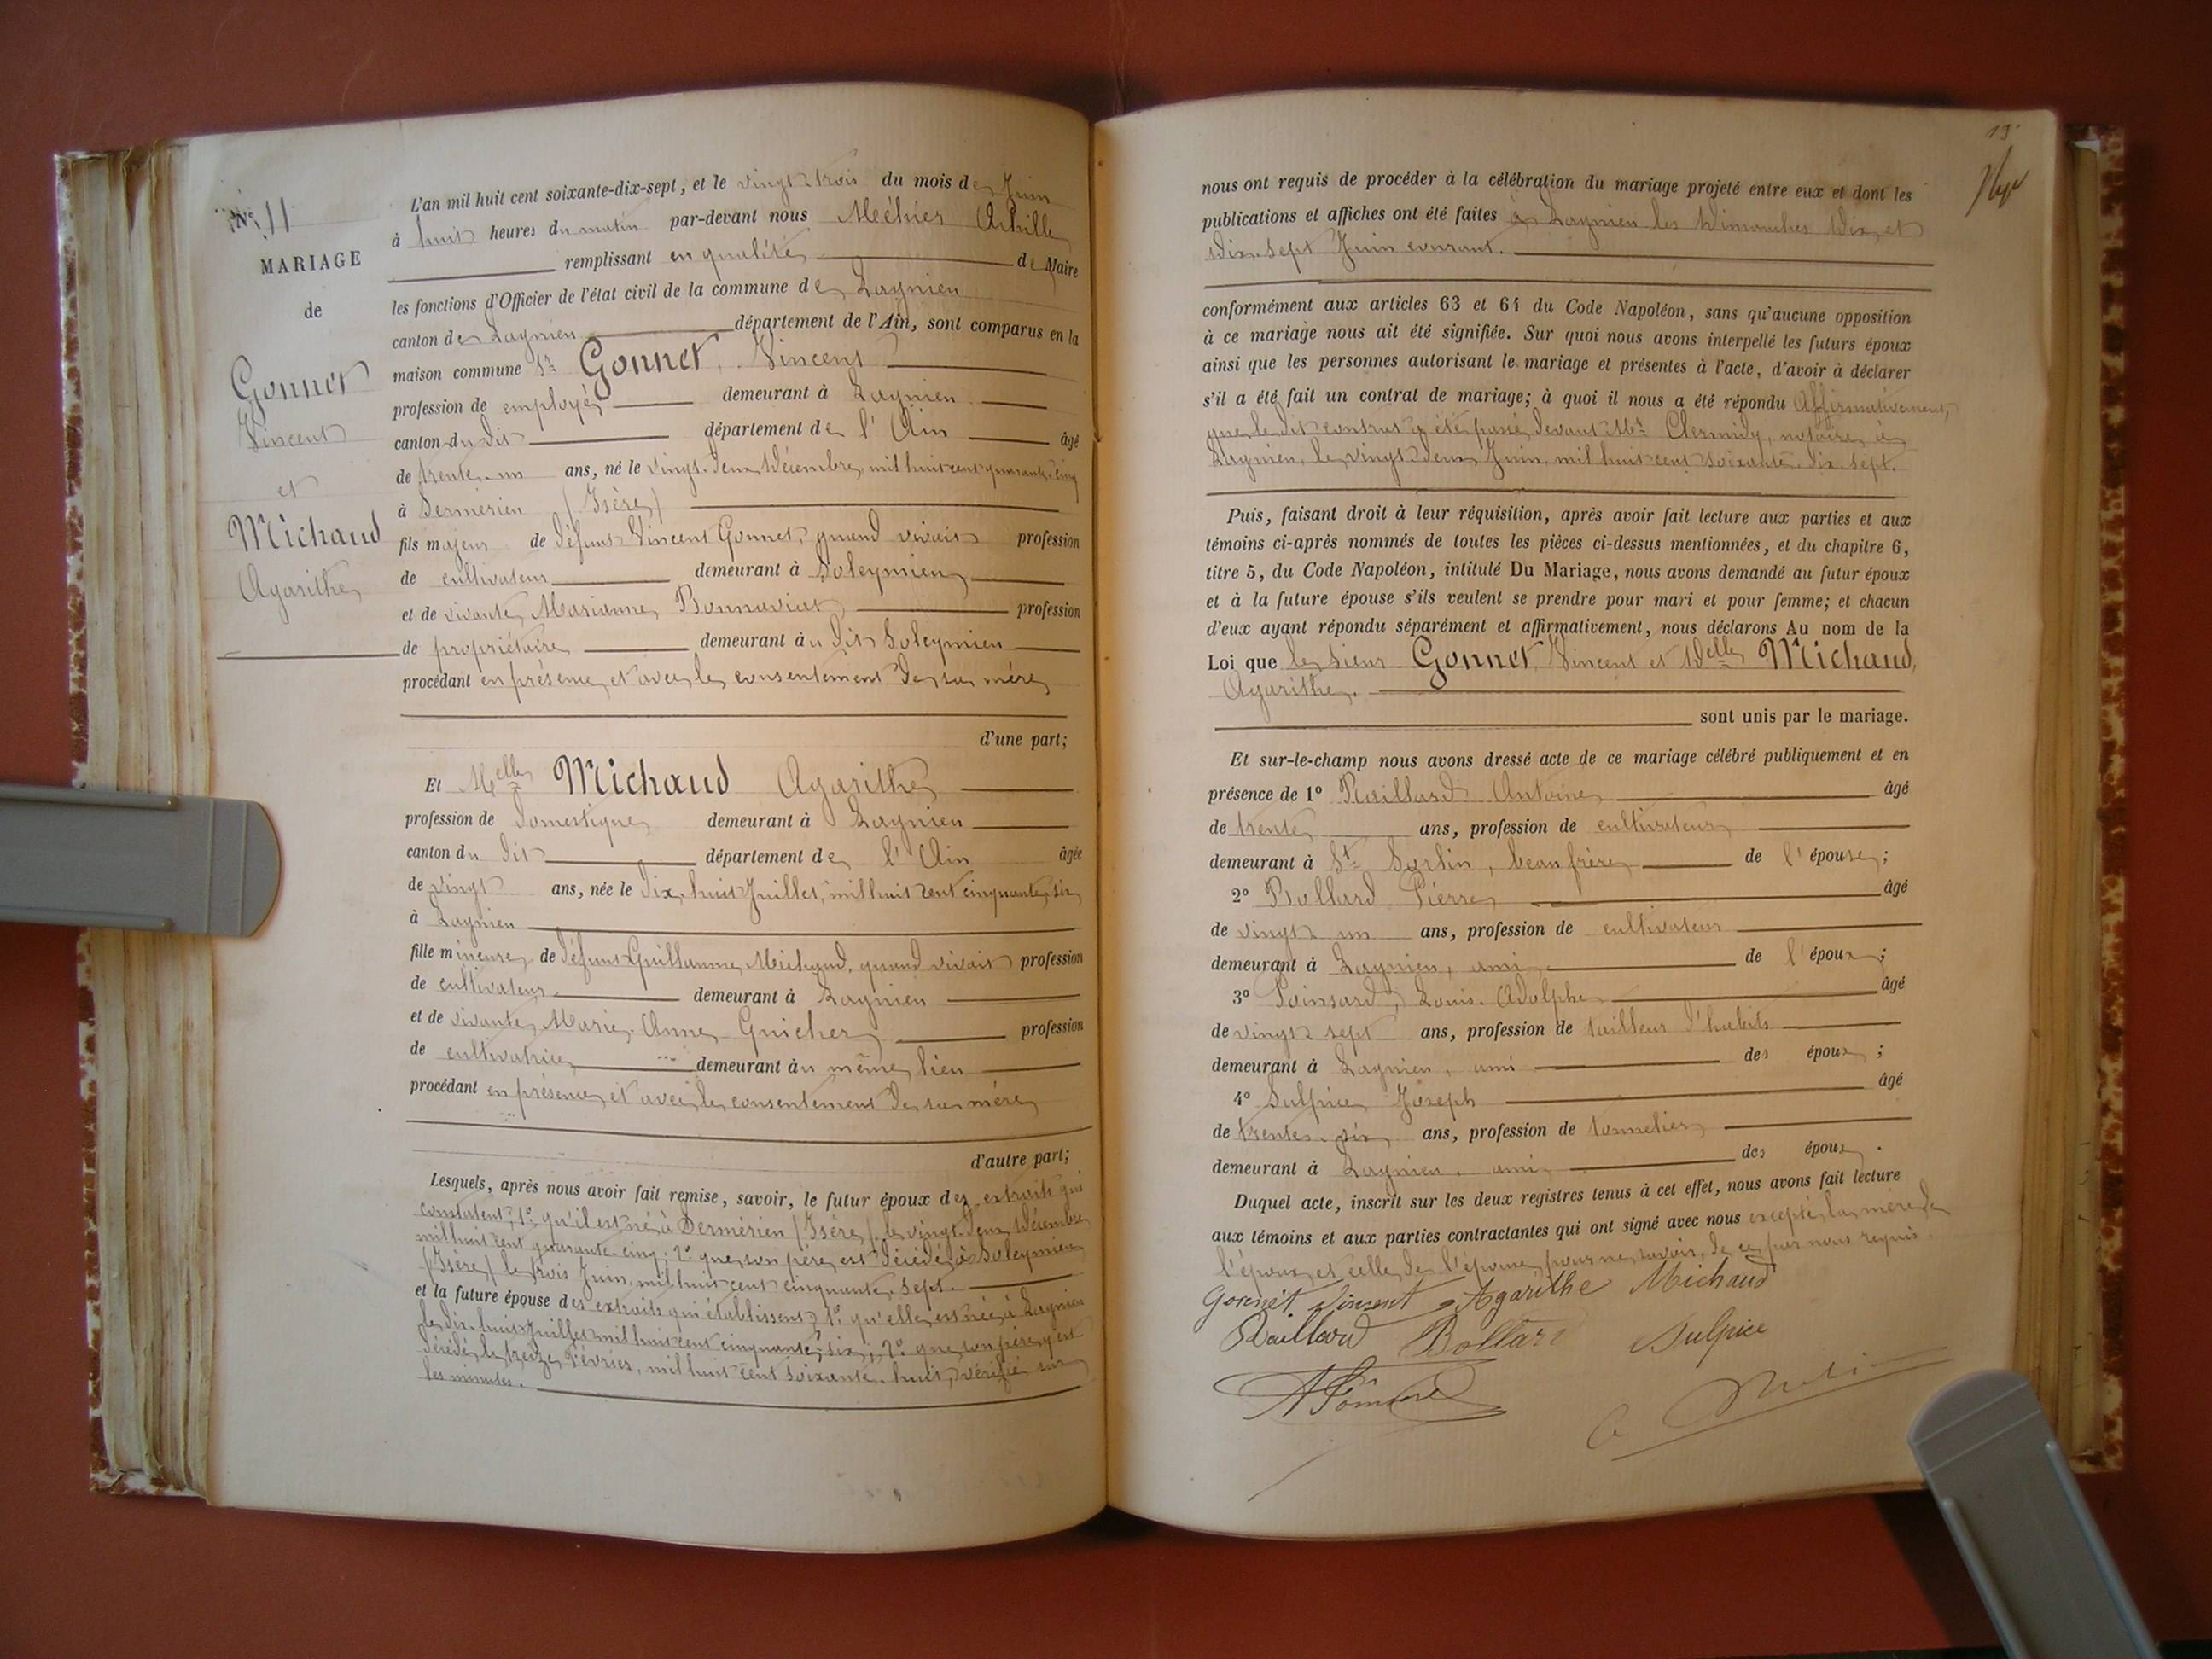 N° 11
MARIAGE
de
Gonnet
Vincent
et
Michaud
Agarithe
L'an mil huit cent soixante-dix-sept, et le vingt trois du mois de Juin
à huit heures du matin par-devant nous Méhier Achille
remplissant en qualité de Maire
les fonctions d'Officier de l'état civil de la commune de Lagnieu
canton de Lagnieu département de l'Ain, sont comparus en la
maison commune Sr Gonnet, Vincent
profession de employé demeurant à Lagnieu
canton du dit département de l'Ain âgé
de trente-un ans, né le vingt-deux Décembre, mil huit cent quarante-cinq
à Sermérieu (Isère)
fils majeur de défunt Vincent Gonnet, quand vivait profession
de cultivateur demeurant à Soleymieu
et de vivante, Marianne Bonnaviat profession
de propriétaire demeurant au dit Soleymieu
procédant en présence et avec le consentement de sa mère
d'une part;
Et Melle Michaud Agarithe
profession de domestique demeurant à Lagnieu
canton du dit département de l'Ain âgée
de vingt ans, née le dix-huit Juillet, mil huit cent cinquante-six
à Lagnieu
fille mineure de défunt Guillaume Michaud, quand vivait profession
de cultivateur demeurant à Lagnieu
et de vivante, Marie-Anne Guicher profession
de cultivatrice demeurant au même lieu
procédant en présence et avec le consentement de sa mère
d'autre part;
Lesquels, après nous avoir fait remise, savoir, le futur époux des extraits qui
constatent, 1° qu'il est né à Sermérieu (Isère) le vingt-deux Décembre
mil huit cent quarante-cinq; 2° que son père est décédé à Soleymieu
(Isère) le trois Juin, mil huit cent cinquante-sept.
et la future épouse des extraits qui établissent, 1° qu'elle est née à Lagnieu
le dix-huit Juillet mil huit cent cinquante-six; 2° que son père y est
décédé le treize Février, mil huit cent soixante-huit, vérifié sur
les minutes.
13
nous ont requis de procéder à la célébration du mariage projeté entre eux et dont les
publications et affiches ont été faites à Lagnieu les Dimanches Dix et
Dix-sept Juin courant.
conformément aux articles 63 et 64 du Code Napoléon, sans qu'aucune opposition
à ce mariage nous ait été signifiée. Sur quoi nous avons interpellé les futurs époux
ainsi que les personnes autorisant le mariage et présentes à l'acte, d'avoir à déclarer
s'il a été fait un contrat de mariage; à quoi il nous a été répondu Affirmativement,
que le dit contrat a été passé devant Me Clermidy, notaire à
Lagnieu, le vingt-deux Juin, mil huit cent soixante-dix-sept.
Puis, faisant droit à leur réquisition, après avoir fait lecture aux parties et aux
témoins ci-après nommés de toutes les pièces ci-dessus mentionnées, et du chapitre 6,
titre 5, du Code Napoléon, intitulé Du Mariage, nous avons demandé au futur époux
et à la future épouse s'ils veulent se prendre pour mari et pour femme; et chacun
d'eux ayant répondu séparément et affirmativement, nous déclarons Au nom de la
Loi que le sieur Gonnet, Vincent et Delle Michaud,
Agarithe.
sont unis par le mariage.
Et sur-le-champ nous avons dressé acte de ce mariage célébré publiquement et en
présence de 1° Raillard Antoine âgé
de trente ans, profession de cultivateur
demeurant à St Sorlin, beau frère de l'épouse;
2° Bollard Pierre âgé
de vingt un ans, profession de cultivateur
demeurant à Lagnieu, ami de l'époux;
3° Poinsard, Louis-Adolphe âgé
de vingt sept ans, profession de tailleur d'habits
demeurant à Lagnieu, ami des époux;
4° Sulpice Joseph âgé
de trente-six ans, profession de tonnelier
demeurant à Lagnieu, ami des époux.
Duquel acte, inscrit sur les deux registres tenus à cet effet, nous avons fait lecture
aux témoins et aux parties contractantes qui ont signé avec nous excepté la mère de
l'époux et celle de l'épouse pour ne savoir, de ce par nous requis.
Gonnet Vincent Agarithe Michaud
Raillard Bollard Sulpice